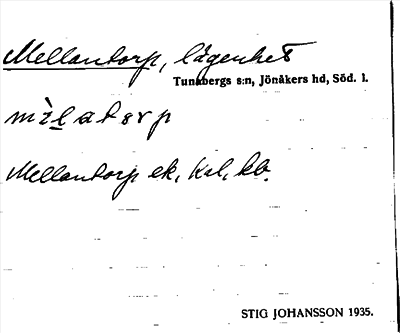 Mellantorp, lägenhet
Tunabergs s:n, Jönåkers hd, Söd. l.
mèlatorp
Mellantorp ek, kal, kb.
STIG JOHANSSON 1935.